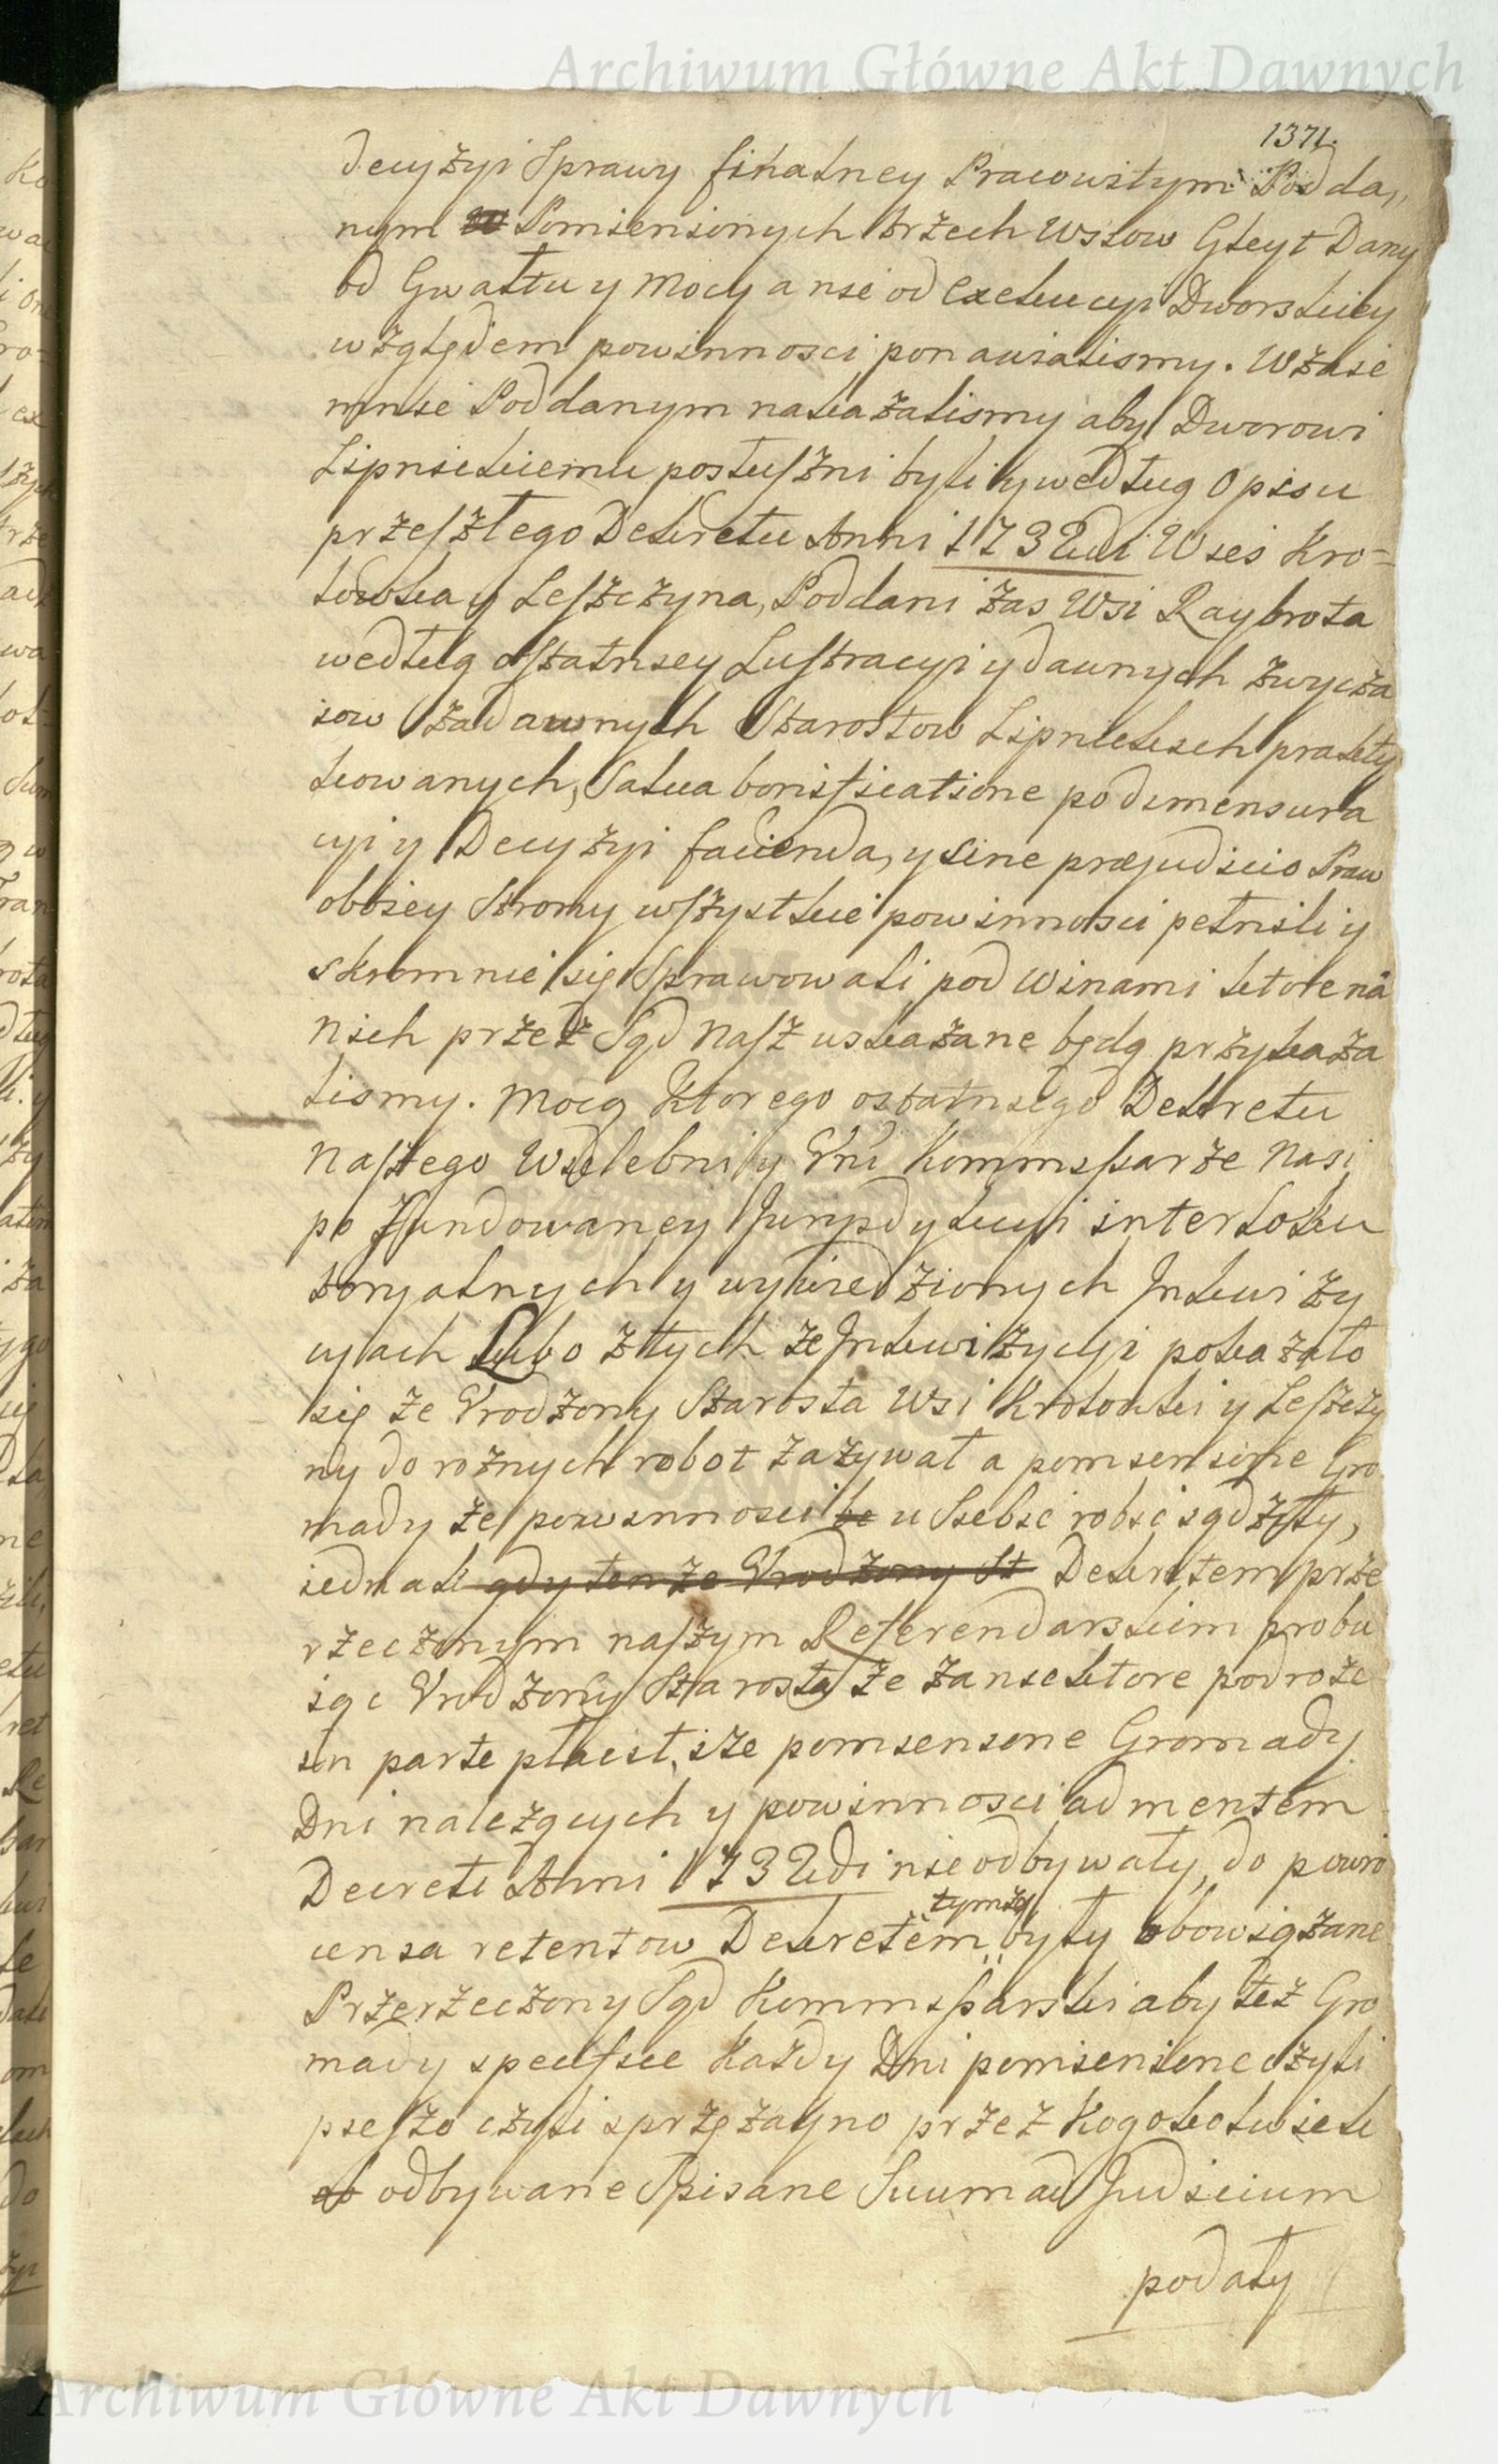 Archiwum Główne Akt Dawnych
1371.
decyzyi Sprawy finalney Pracowitym Podda,,
nym w Pomienionych trzech Wsiow Gleyt Dany
od Gwałtu y Mocy a nie od Exekucyi Dworskiey
względem powinnosci ponawialismy. Wzaie
mnie Poddanym nakazalismy aby Dworowi
Lipnickiemu posłuſzni byli y według Opisu
przeſzłego Dekretu Anni 1732di Wies Kro=
towka y Leſzczyna, Poddani zas Wsi Raybrota
według oſtatniey Luſtracyi y dawnych zwycza
iow za dawnych Starostow Lipnickich prakty
kowanych, Salva bonificatione po dimensura
cyi y Decyzyi facienda, y sine præjudicio Praw
oboiey Strony wſzystkie powinnosci pełnili y
skromnie się Sprawowali pod Winami ktore na
nich przez Sąd Naſz wskazane będą przykaza
lismy. Mocą Ktorego ostatniego Dekretu
Naſzego Wielebni y Urni Kommiſsarze Nasi
po Zfundowaney Juryzdykcyi interloku
toryalnych y wywiedzionych Inkwizy
cyiach Lubo z tych ze Inkwizycyi pokazało
się ze Urodzony Starosta Wsi Krotowki y Leſzczy
ny do roznych robot zazywał a pomienione Gro
mady ze powinnosci be u Siebie robić sądziły,
iednak gdy tenze Urodzony St Dekretem prze
rzeczonym naſzym Referendarskim probu
iąc Urodzony Starosta ze za nie ktore podroze
in parte płacił, ize pomienione Gromady
Dni nalezących y powinnosci ad mentem
Decreti Anni 1732di nie odbywały, do powro
cenia retentow Dekretem były obowiązane
tymze
Przerzeczony Sąd Kommiſsarski aby tez Gro
mady specifice Kazdy Dni pomienione czyli
pieſzo czyli sprzęzayno przez Kogokolwiek
ob odbywane Spisane Suum ad Judicium
podały
Archiwum Główne Akt Dawnych